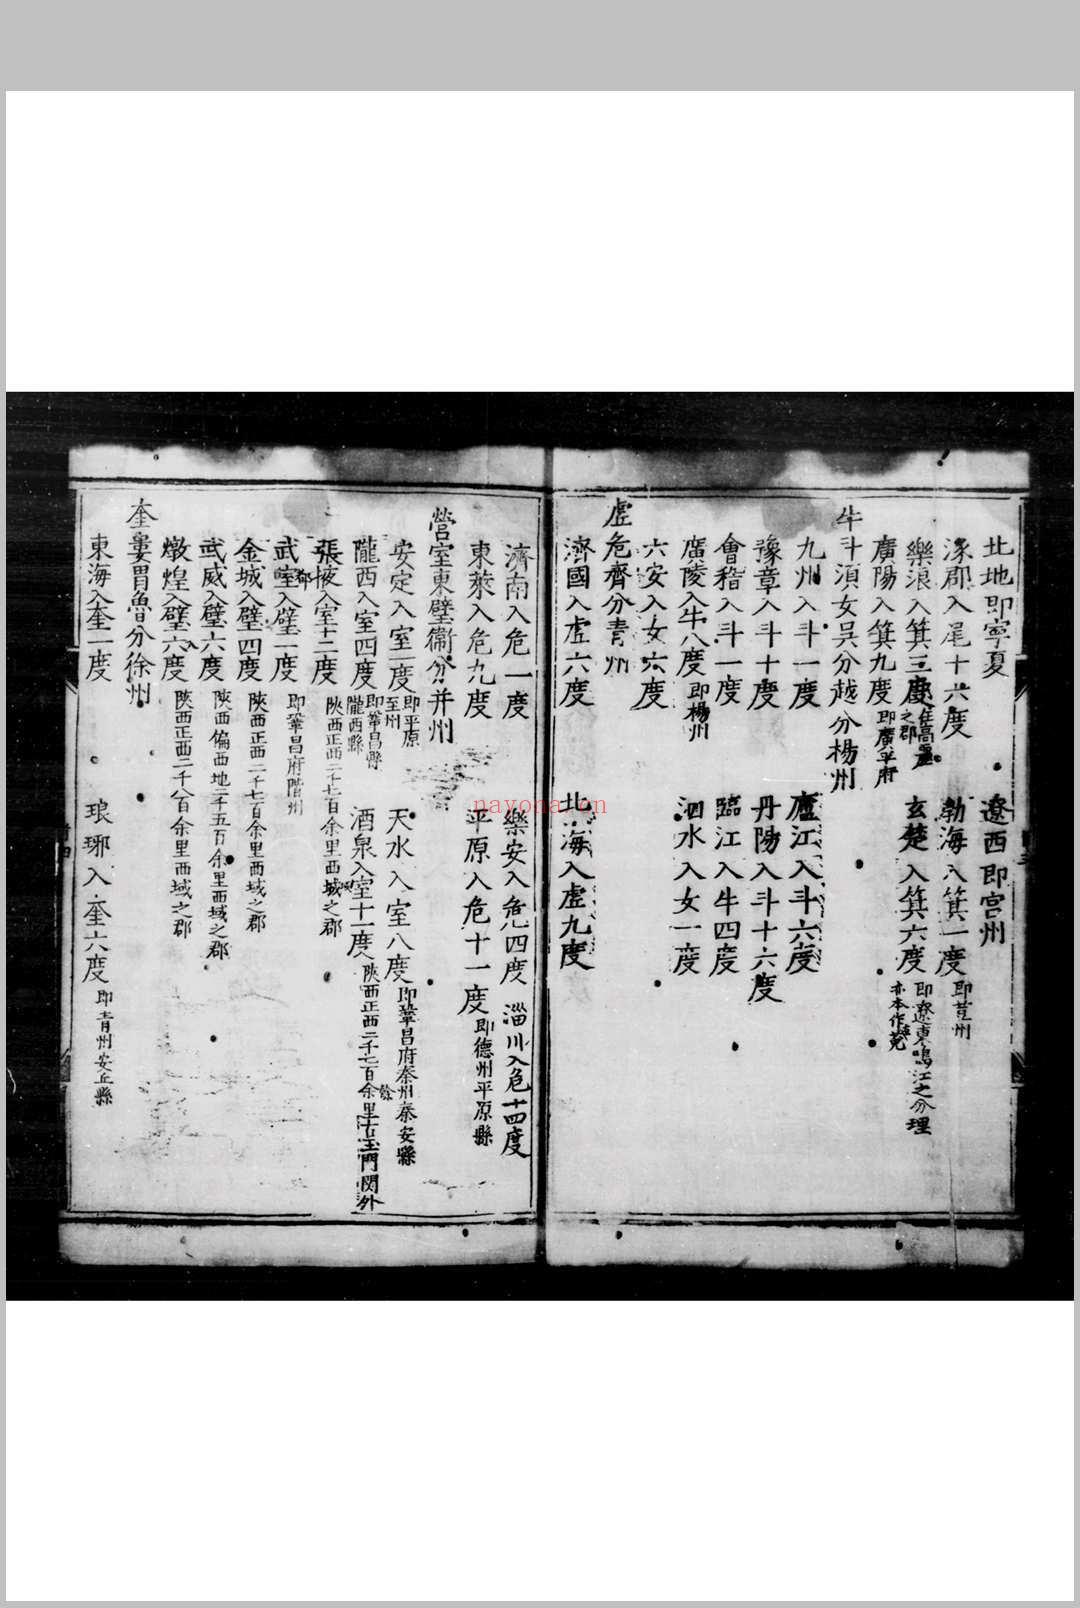 北地即寧夏　遼西即宫州
涿郡入尾十六度　渤海入箕一度即莒州
樂浪入箕三度在高麗之郡　玄楚入箕六度即遼東鳴江之分理亦本作菟
廣陽入箕九度即廣平府
牛斗須女吳分越分楊州
九州入斗一度　廬江入斗六度
豫章入斗十度　丹陽入斗十六度
會稽入斗一度　臨江入牛四度
廣陵入牛八度即楊州　泗水入女一度
六安入女六度
虛危齊分青州
濟國入虛六度　北海入虛九度
濟南入危一度　樂安入危四度　淄川入危十四度
東萊入危九度　平原入危十一度即德州平原縣
營室東壁衞分并州
安定入室一度即平原至州　天水入室八度即鞏昌府秦州秦安縣
隴西入室四度即鞏昌縣隴西縣　酒泉入室十一度陝西正西二千七百餘里古玉門関外
張掖入室十二度陝西正西二千七百余里西域之郡
武都入壁一度即鞏昌府階州
金城入壁四度陝西正西二千七百余里西域之郡
武威入壁六度陝西偏西地二千五百余里西域之郡
燉煌入壁六度陝西正西二千八百余里西域之郡
奎婁胃魯分徐州
東海入奎二度　琅琊入奎六度即青州安丘縣
nayona.cn